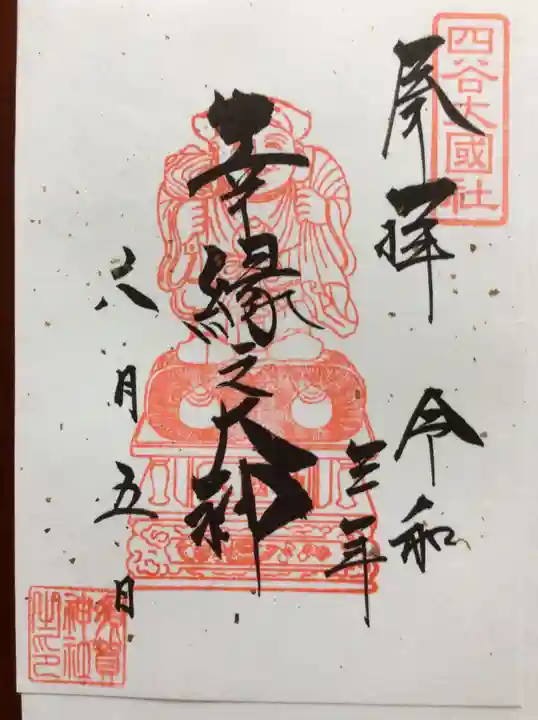 四谷大國社
奉拝
令和
三年
幸縁之大神
六月五日
須賀
神社
之印